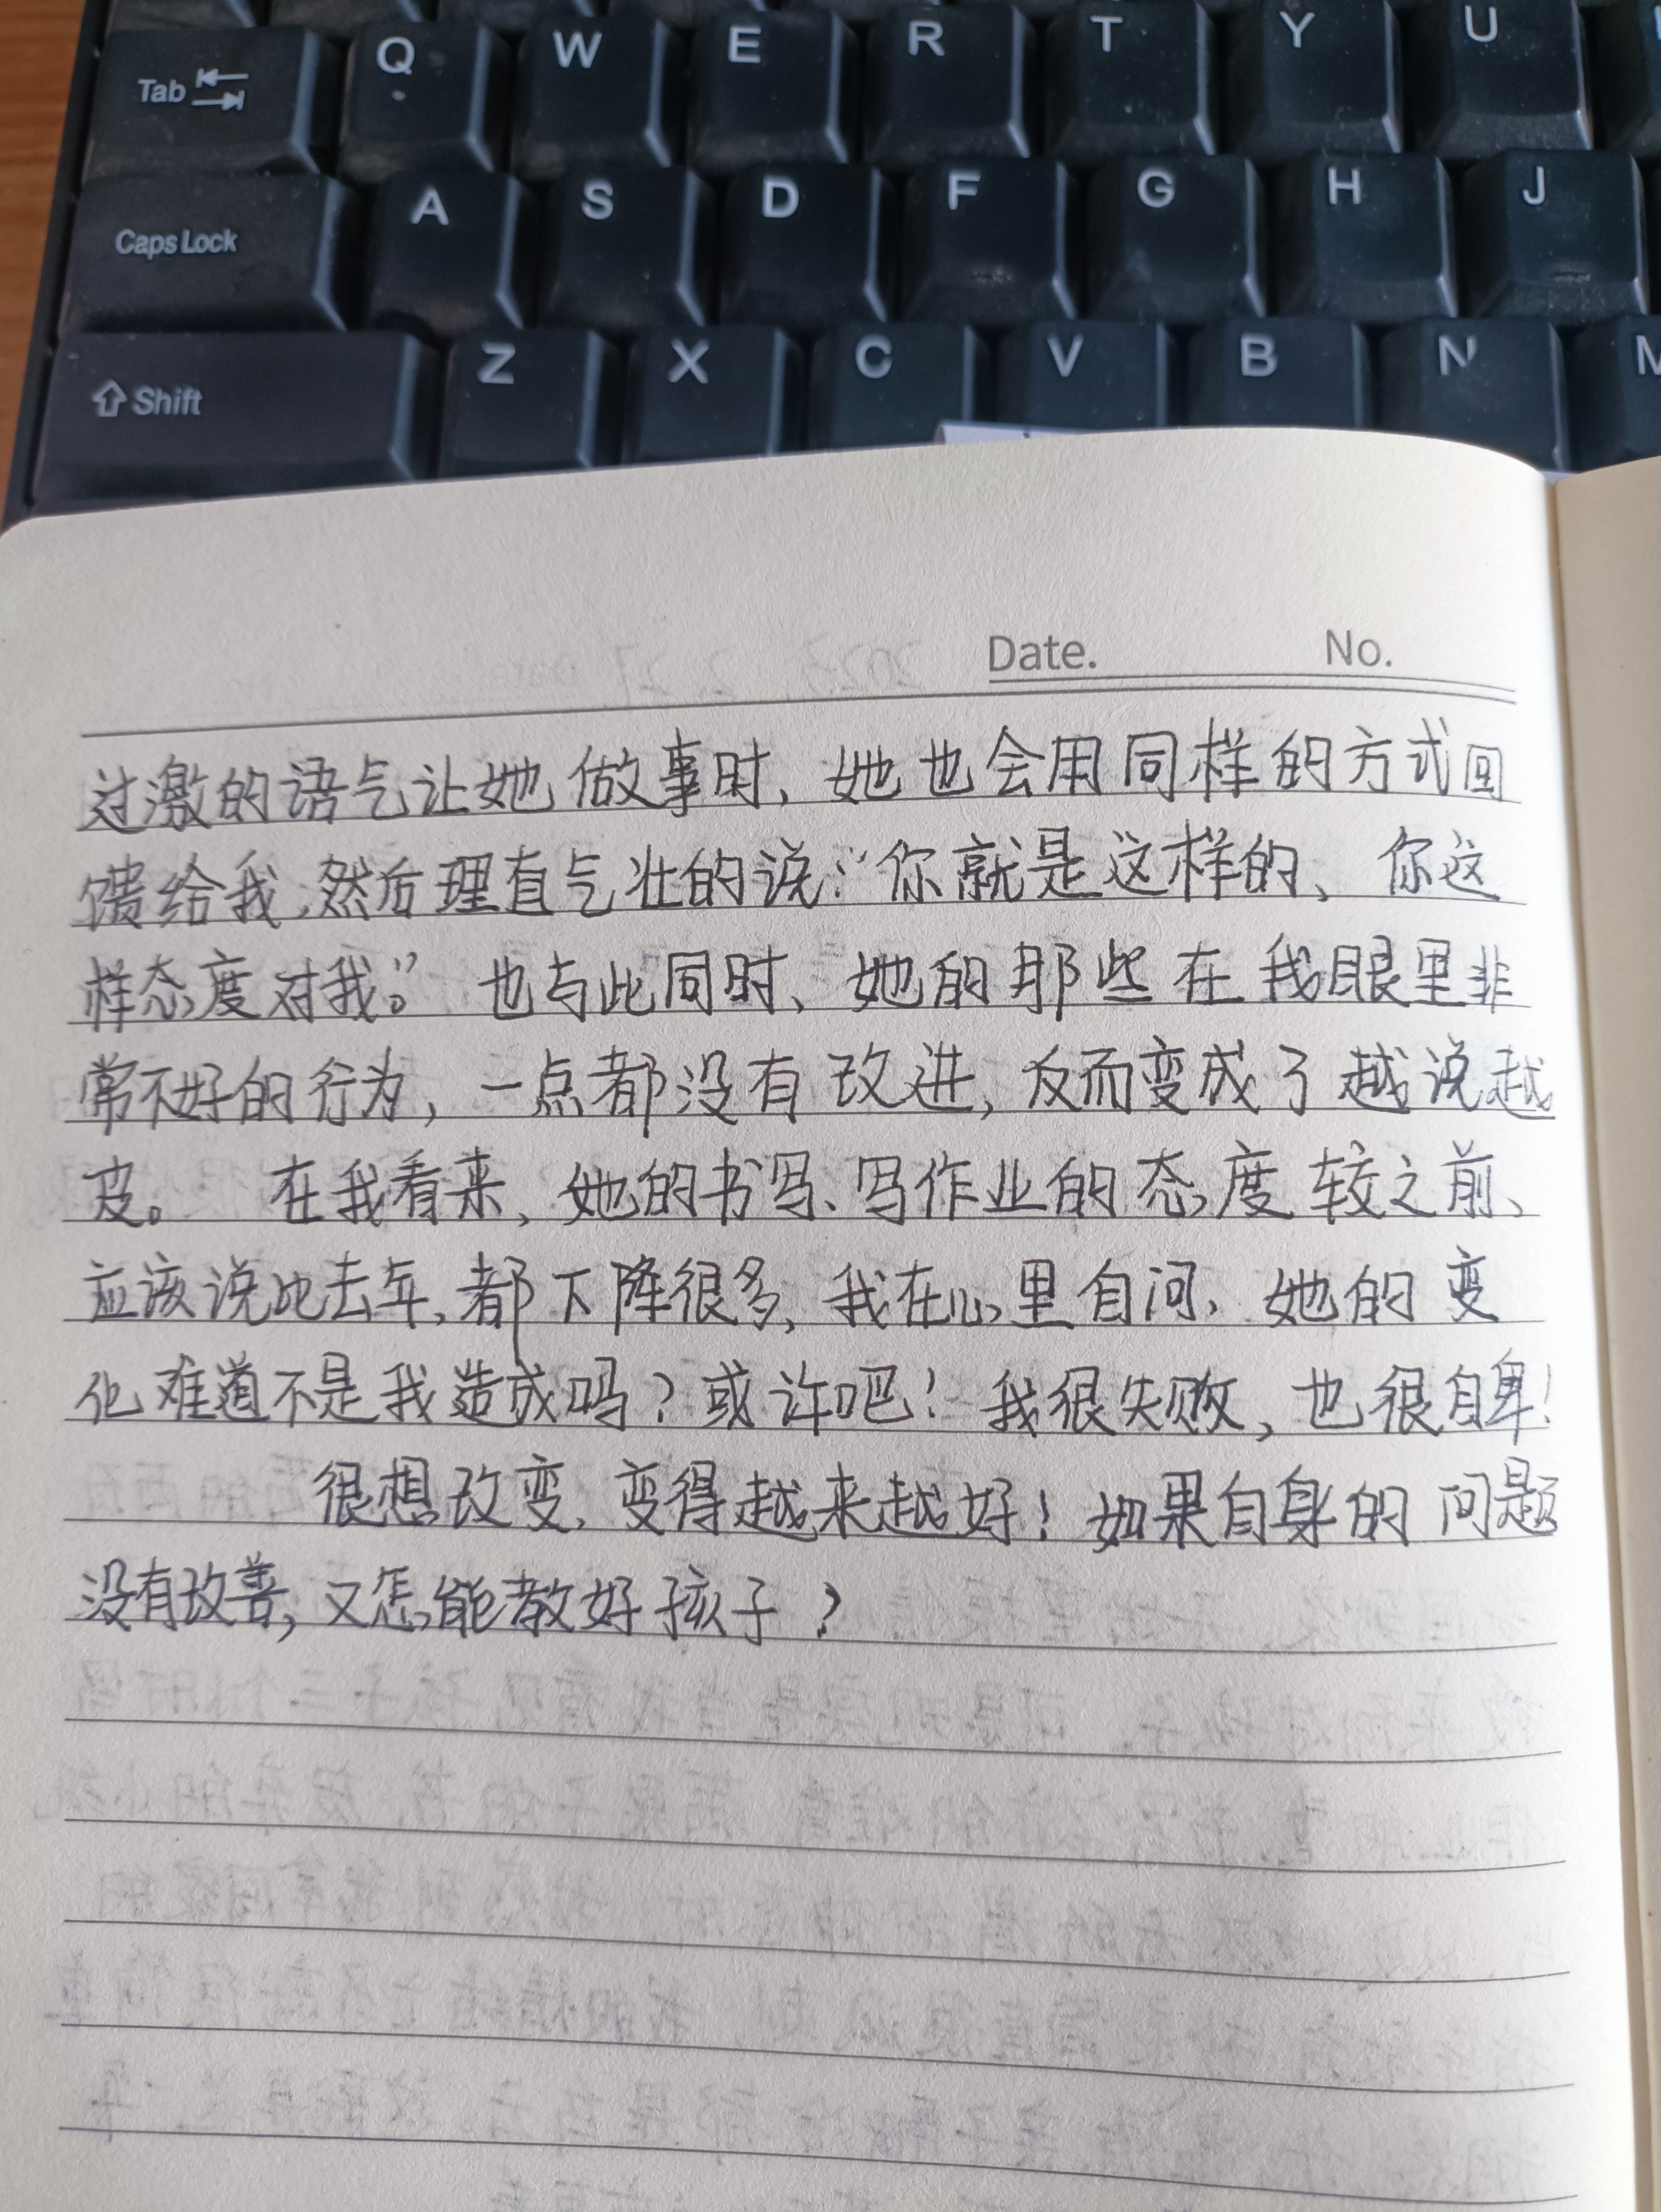 Tab Q W E R T Y U
Caps Lock A S D F G H J
Shift Z X C V B N M
Date. No.
过激的语气让她做事时，她也会用同样的方式回
馈给我，然后理直气壮的说："你就是这样的、你这
样态度对我。" 也与此同时、她的那些在我眼里非
常不好的行为，一点都没有改进，反而变成了越说越
皮。 在我看来，她的书写、写作业的态度较之前、
应该说比去年，都下降很多，我在心里自问，她的变
化难道不是我造成吗？或许吧！我很失败，也很自卑！
很想改变，变得越来越好！如果自身的问题
没有改善，又怎能教好孩子？